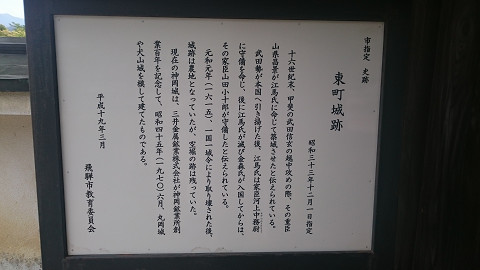 市指定　史跡
東町城跡
昭和三十三年十二月一日指定
十六世紀末、甲斐の武田信玄の越中攻めの際、その重臣
山県昌景が江馬氏に命じて築城させたと伝えられている。
武田勢が本国へ引き揚げた後、江馬氏は家臣河上中務尉
に守備を命じ、後に江馬氏が滅び金森氏が入国してからは、
その家臣山田小十郎が守備したと伝えられている。
元和元年（一六一五）、一国一城令により取り壊された後、
城跡は農地となっていたが、空堀の跡は残っていた。
現在の神岡城は、三井金属鉱業株式会社が神岡鉱業所創
業百年を記念して、昭和四十五年（一九七〇）六月、丸岡城
や犬山城を模して建てたものである。
平成十九年三月
飛騨市教育委員会